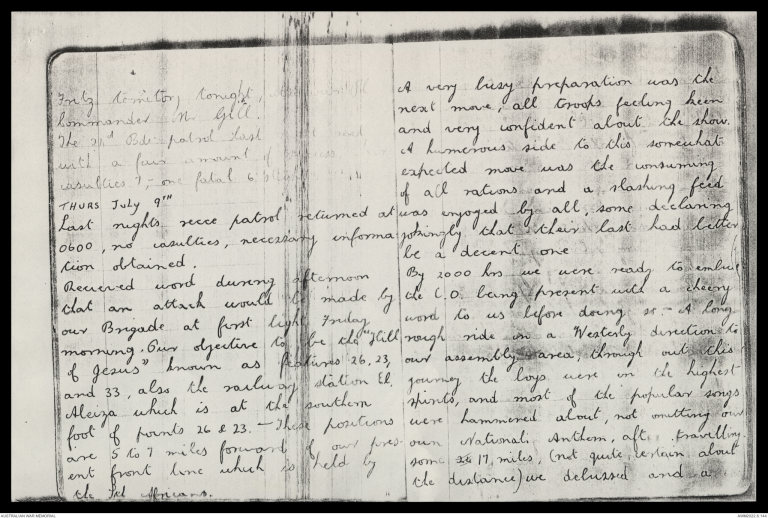 Fritz territory tonight,
Commander Mr Gill.
The 21st Bde patrol Last
with a fair amount of
casulties 7, - one fatal 6
THURS July 9TH
Last nights recce patrol returned at
0600, no casulties, necessary informa-
tion obtained.
Recieved word during afternoon
that an attack would be made by
our Brigade at first light Friday
morning. Our objective to be the "Hill
of Jesus" known as features 26, 23,
and 33, also the railway station El
Aleiza which is at the southern
foot of points 26 & 23. - These positions
are 5 to 7 miles forward of our pres-
ent front line which is held by
the Sth Africans.
A very busy preparation was the
next move, all troops feeling keen
and very confident about the show.
A humerous side to this somewhat
expected move was the consuming
of all rations and a slashing feed
was enjoyed by all, some declaring
jokingly that their last had better
be a decent one
By 2000 hrs we were ready to embus
the C.O. being present with a cheery
word to us before doing so - A long
rough ride in a Westerly direction to
our assembly area, through out this
journey the boys were in the highest
spirits, and most of the popular songs
were hammered about, not omitting our
own National Anthem, aft. travelling
some 17 miles, (not quite certain about
the distance) we debussed and a
AUSTRALIAN WAR MEMORIAL